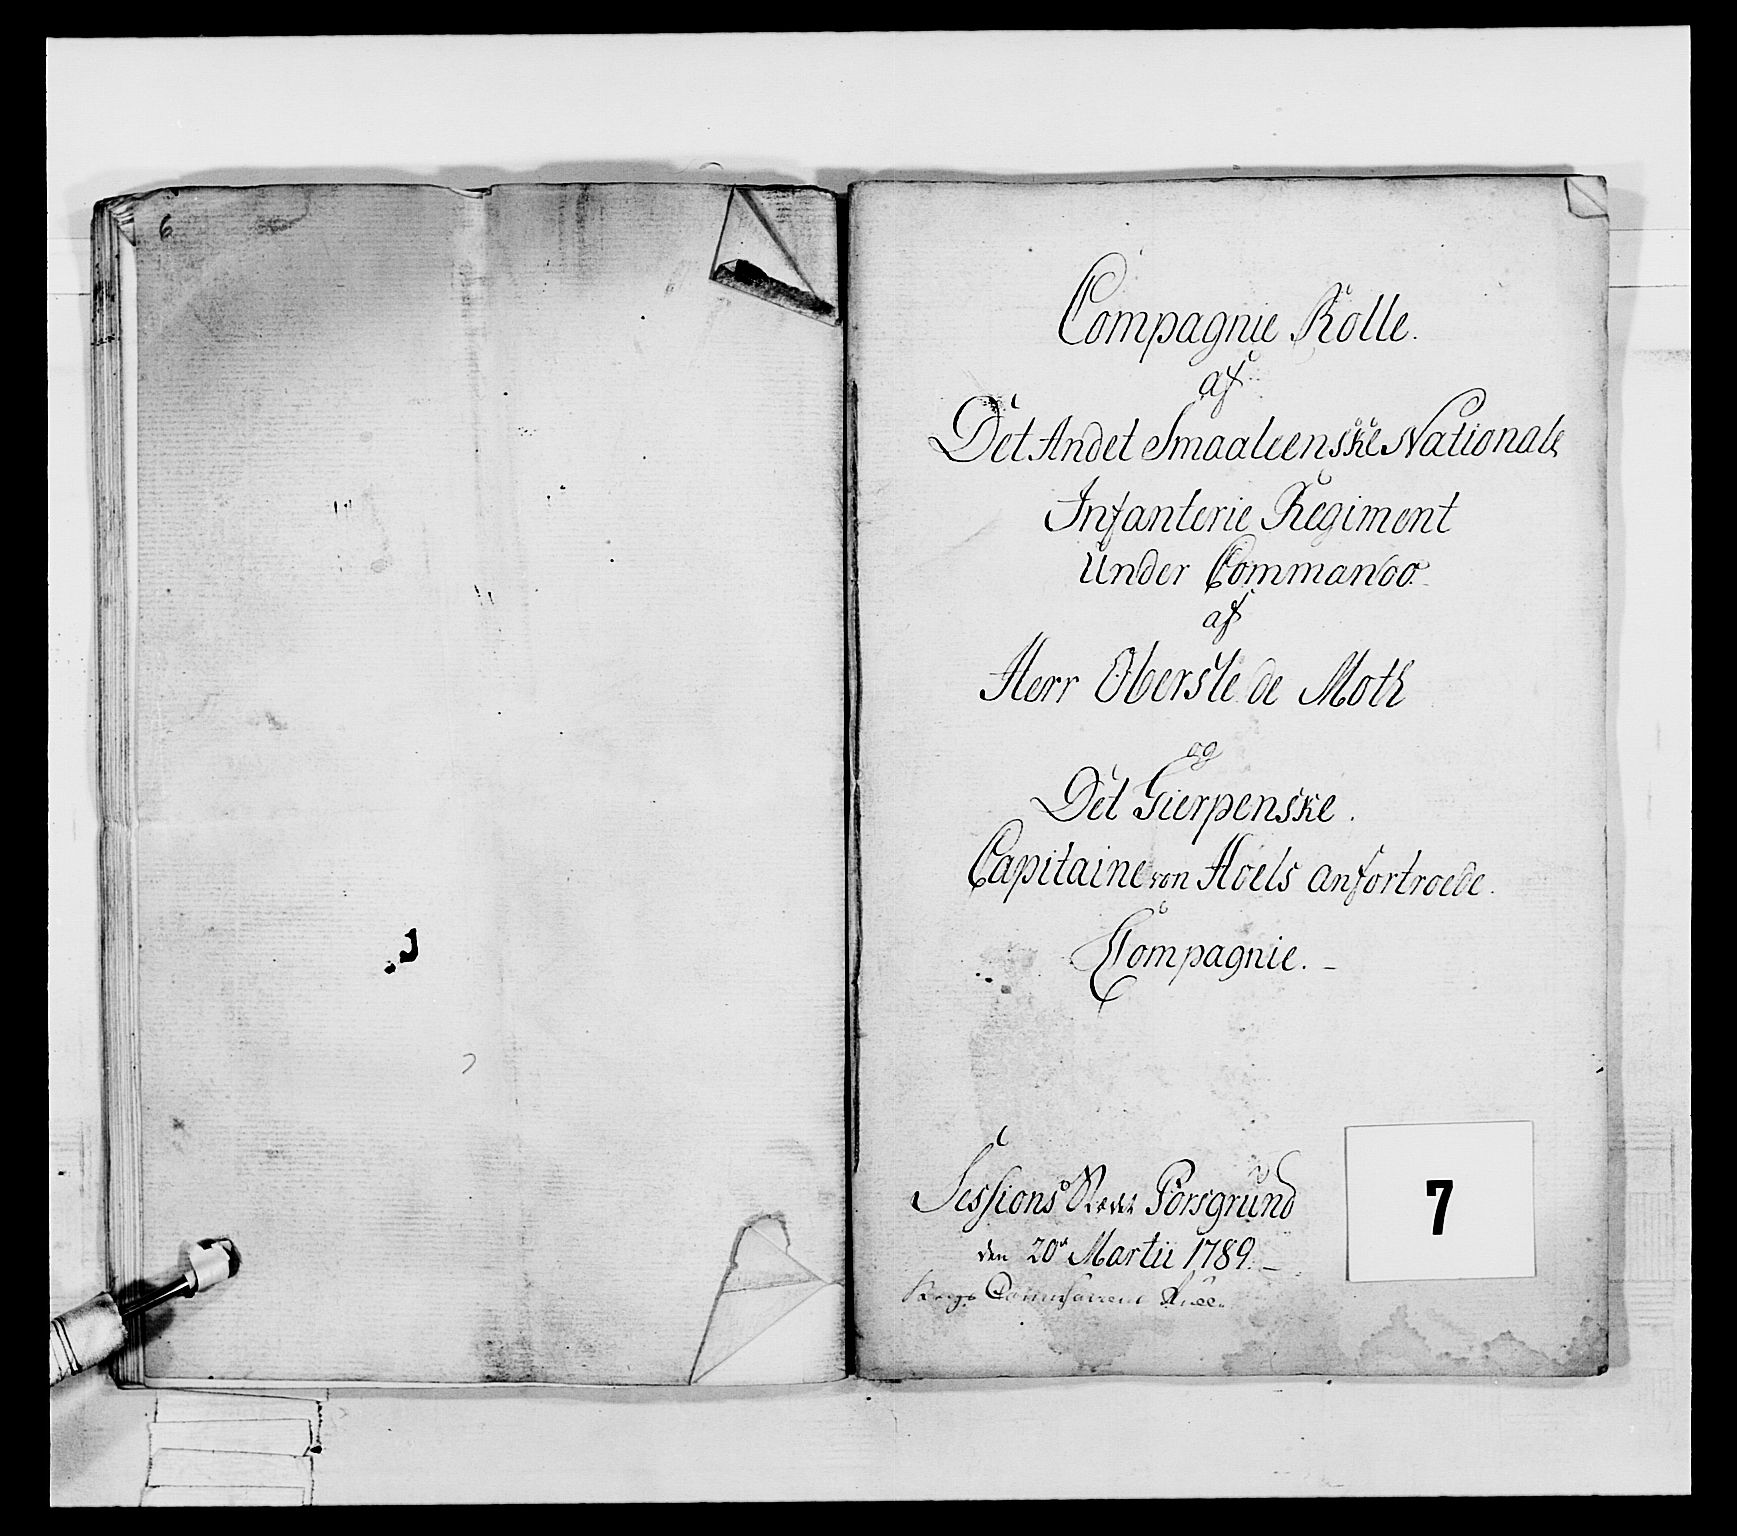 6
Compagnie Rolle.
af
Det Andet Smaaleenske Nationale
Infanterie Regiment
Under Commando
af
Herr Oberste de Moth
og
Det Gierpenske.
Capitaine von Hoels anfortroede.
Compagnie. -
Sessions Porsgrund
den 20de Martii 1789. -
7